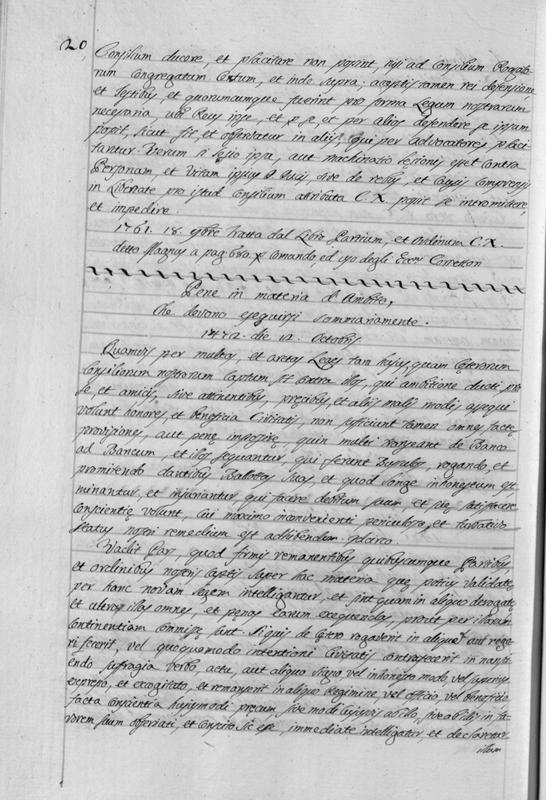 20
Consilium ducere, et placitare non possint, nisi ad Consilium Rogato-
rum Congregatum Centum, et inde supra; acceptis tamen rei defensione
et Testibus, et quorumcumque fuerint pro forma Legum nostrarum
necessaria, vel Reus ipse, et per se, et per alios defendere se ipsum
possit, sicut fit, et observatur in aliis, qui per advocatores placi-
tantur. Verum si lesio ipsa, aut machinatio lesionis esset contra
Personam, et Vitam ipsius Ducis, sive de restis, et Casis compressis
in Libertate pro istud Consilium attributa C. X. possit se intromittere,
et impedire.
1761. 18. 9bre Tratta dal Libro Partium, et Ordinum C. X.
detto Magnus a pag. 680. per comando, ed uso degli Eccmi Correttori
Pene in materia d'Ambito,
che devono eseguirsi sommariamente.
1472. die 12. Octobris.
Quamvis per multas, et arctas Leges tam hujus, quam Ceterorum
Consiliorum nostrorum Captum sit contra illos, qui ambitione ducti pro
se, et amicis, sive attinentibus, precibus, et aliis malis modis assequi
volunt honores, et beneficia Civitatis, non sufficiunt tamen omnes facte
provisiones, aut pene imposite, quin multi vangeant de Banco
ad Bancum, et illos sequantur, qui ferunt Bussulos, rogando, et
promittendo dantibus Ballottas suas, et quod longe inhonestum est,
minantur, et injuriantur qui facere debitum suum, et sue satisfacere
Conscientie volunt, Cui maximo inconvenienti periculoso, et turbativo
status nostri remedium est adhibendum. idcirco.
Vadit Pars quod firmis remanentibus quibuscumque Partibus
et ordinibus nostris captis super hac materia que potius validate
per hanc novam Legem intelligantur, et sint quam in aliquo derogate
et ultra illas omnes, et penas earum exequendas, prout per illarum
continentiam commisse sunt. Siquis de Cetero rogaverit in aliquo aut roga-
ri fecerit, vel quoquomodo intentioni Civitatis contrafecerit in nanci-
endo suffragia verbo actu, aut aliquo signo vel inhonesto modo vel superius
expresso, et excogitato, et remanserit in aliquo Regimine vel officio, vel beneficio
facta conscientia hujusmodi precum sive modi cujusvis ab illo, sive ab aliis in fa-
vorem suum observati, et Conscito sic esse, immediate intelligatur, et declaretur
illam